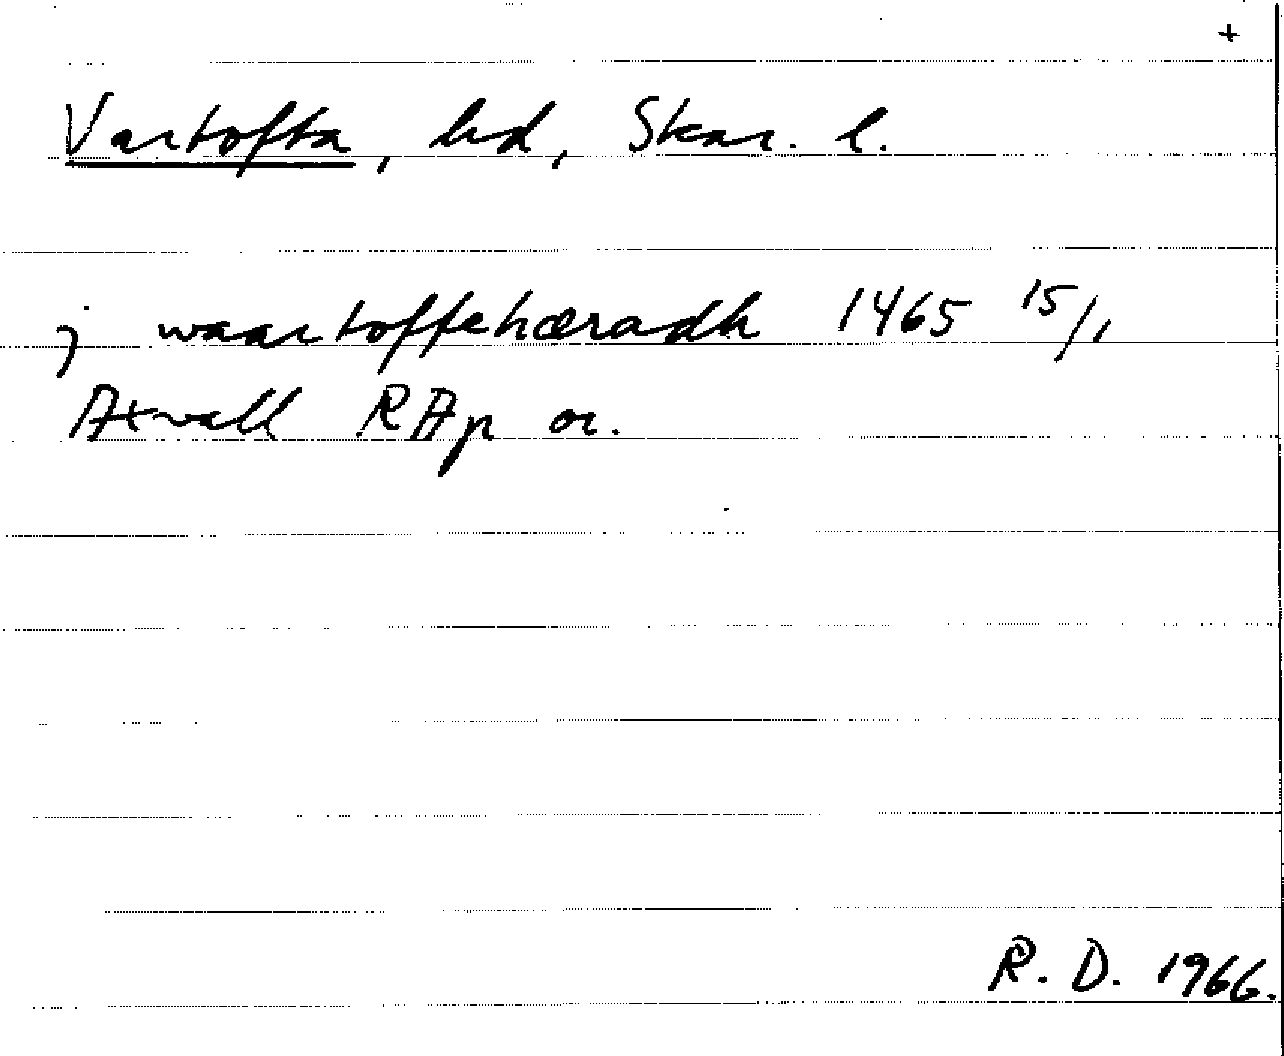 +
Vartofta, hd, Skar. l.
j waartoffehæradh 1465 15/1
Axvall RAp or.
R. D. 1966.